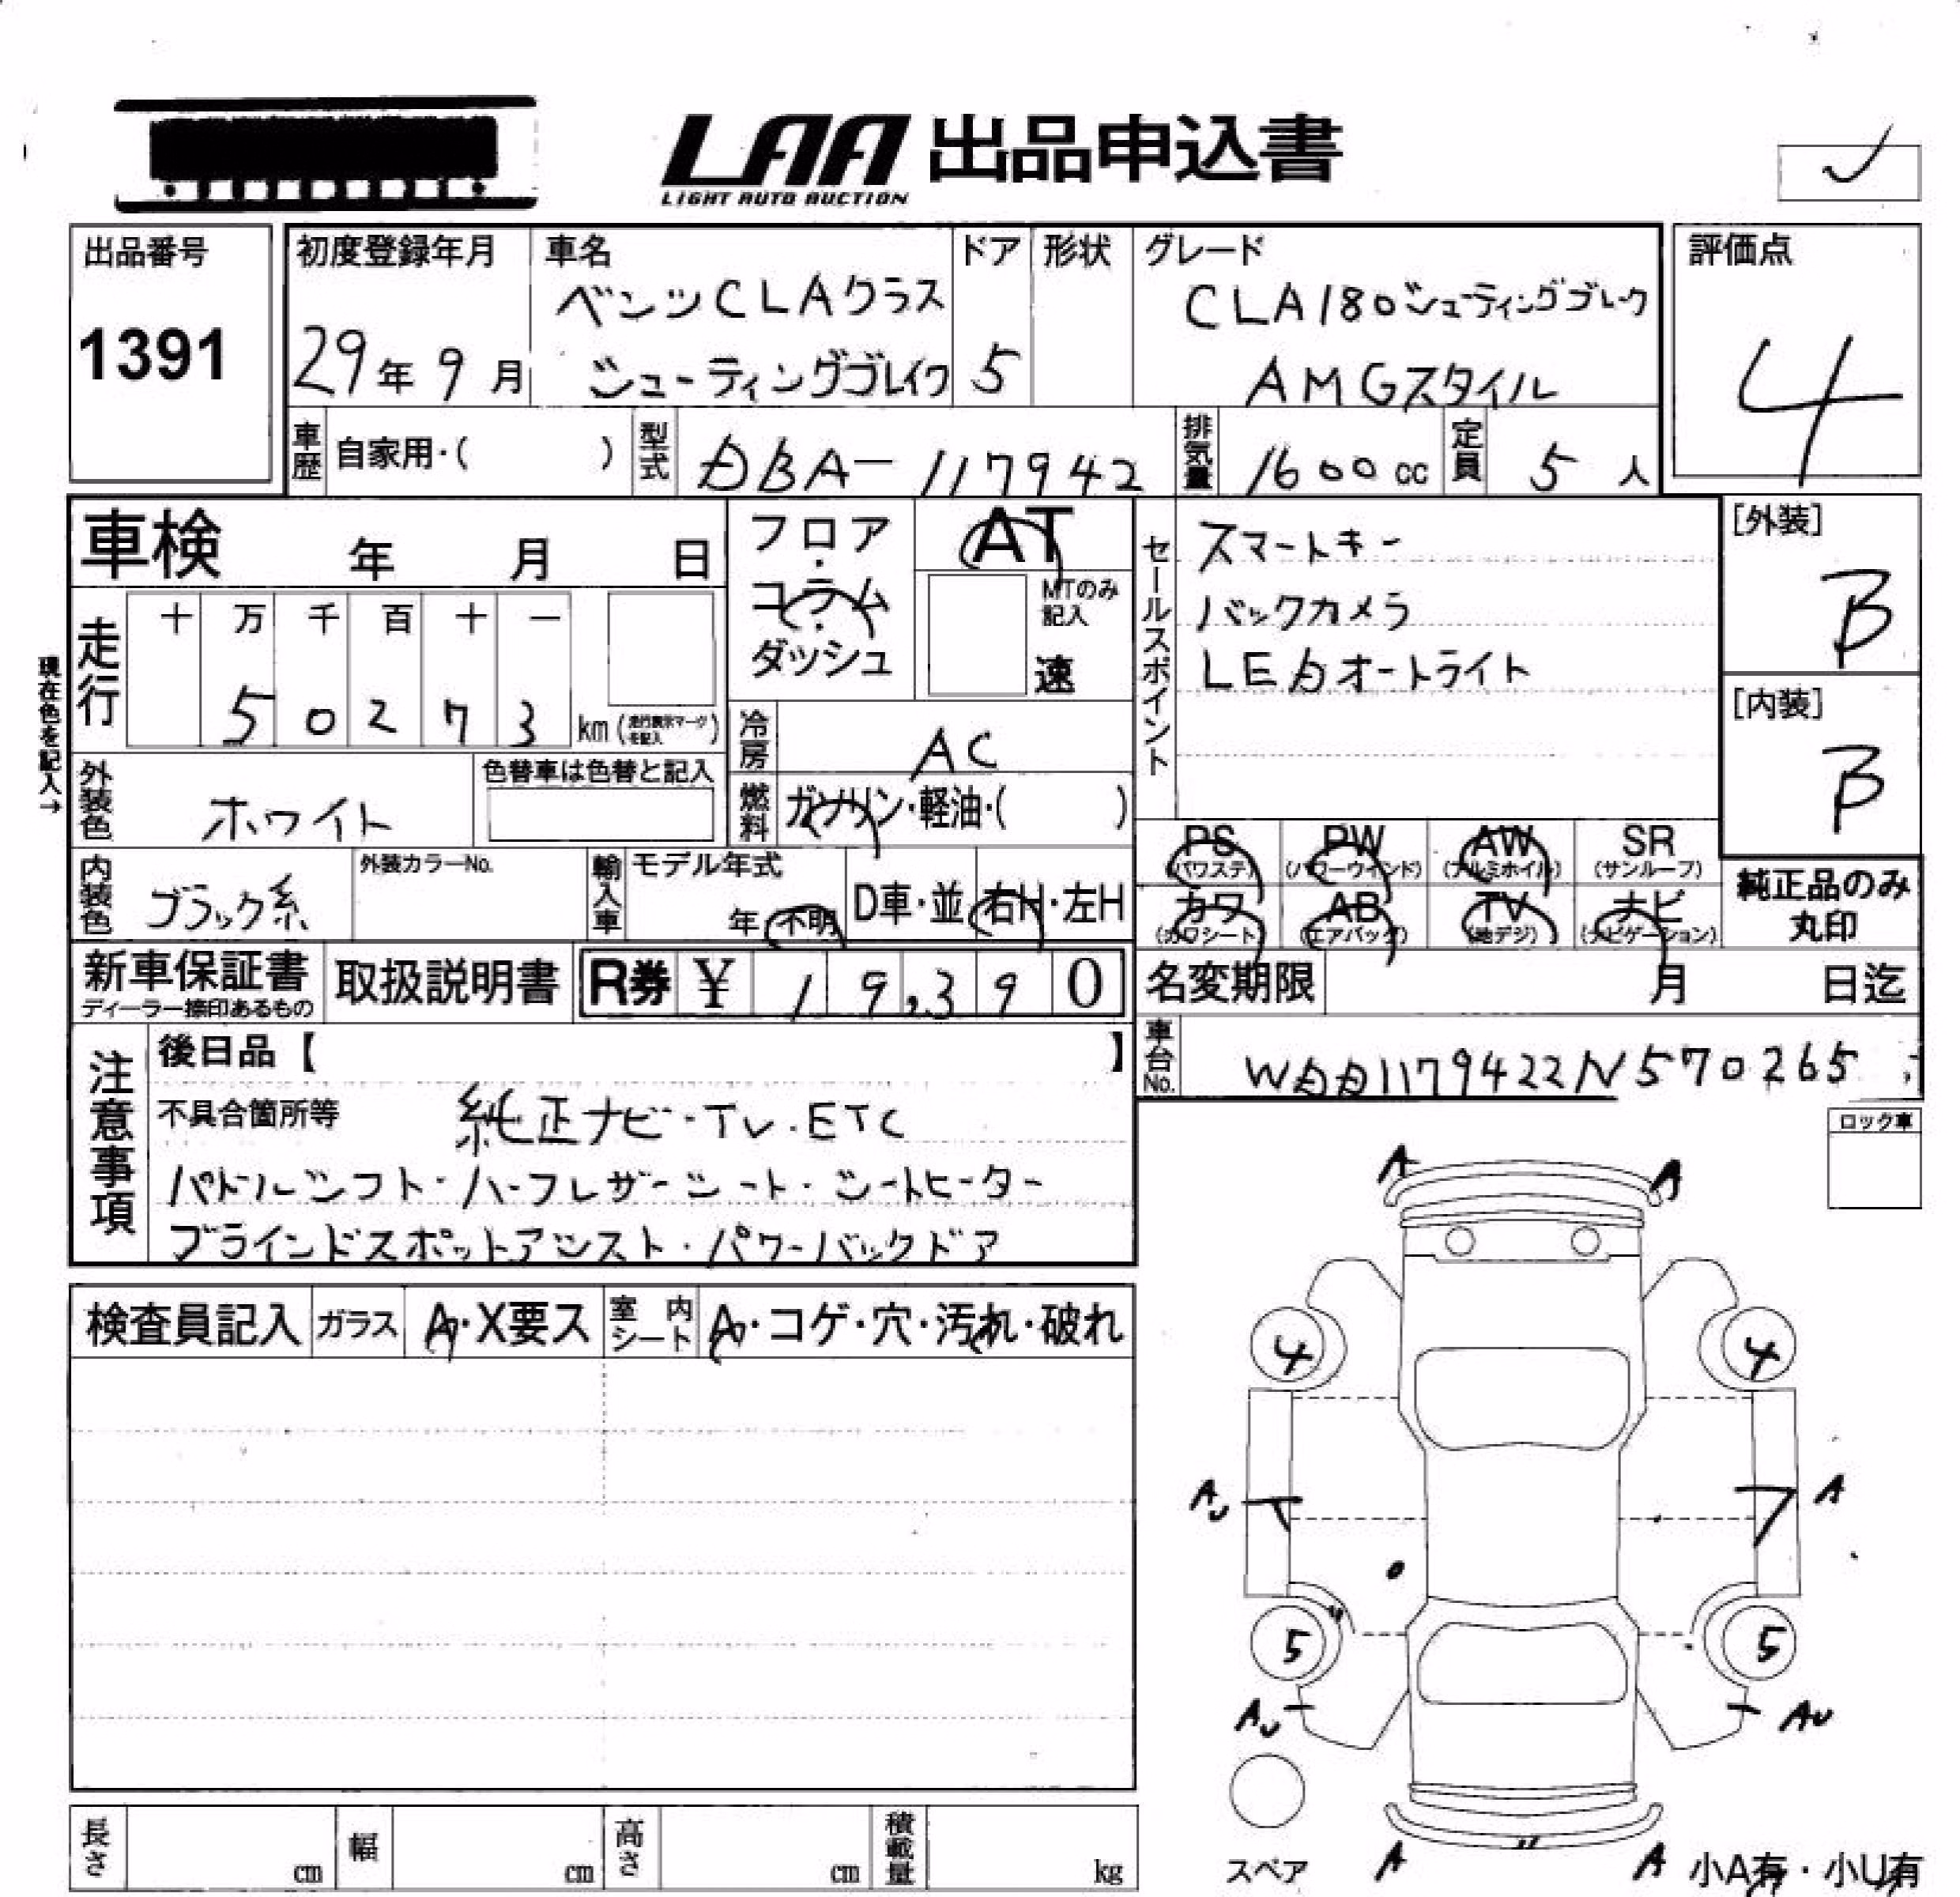 LAA 出品申込書
LIGHT AUTO AUCTION
出品番号
1391
初度登録年月
29年9月
車名
ベンツCLAクラス
シューティングブレイク
ドア
5
形状
グレード
CLA180シューティングブレーク
AMGスタイル
評価点
4
車歴 自家用・( )
型式 DBA-117942
排気量 1600cc
定員 5人
車検 年 月 日
フロア・コラム・ダッシュ
AT
MTのみ記入
速
セールスポイント
スマートキー
バックカメラ
LEDオートライト
[外装]
B
[内装]
B
現在色を記入→
走行
十 万 千 百 十 一
5 0 2 7 3 km(走行表示マークを記入)
冷房 AC
燃料 ガソリン・軽油・( )
外装色 ホワイト
色替車は色替と記入
内装色 ブラック系
外装カラーNo.
輸入車 モデル年式
年 不明
D車・並
右H・左H
PS(パワステ) PW(パワーウインド) AW(アルミホイル) SR(サンルーフ)
カワ(カワシート) AB(エアバッグ) TV(地デジ) ナビ(ナビゲーション)
純正品のみ丸印
新車保証書
ディーラー捺印あるもの
取扱説明書
R券 ¥ 19,390
名変期限 月 日迄
車台No. WDD1179422N570265
注意事項
後日品【 】
不具合箇所等 純正ナビ・TV・ETC
パドルシフト・ハーフレザーシート・シートヒーター
ブラインドスポットアシスト・パワーバックドア
ロック車
検査員記入 ガラス A・X要ス 室内シート A・コゲ・穴・汚れ・破れ
A A
4 4
AU A
5 5
AU AU
スペア
A A
小A有・小U有
長さ cm 幅 cm 高さ cm 積載量 kg